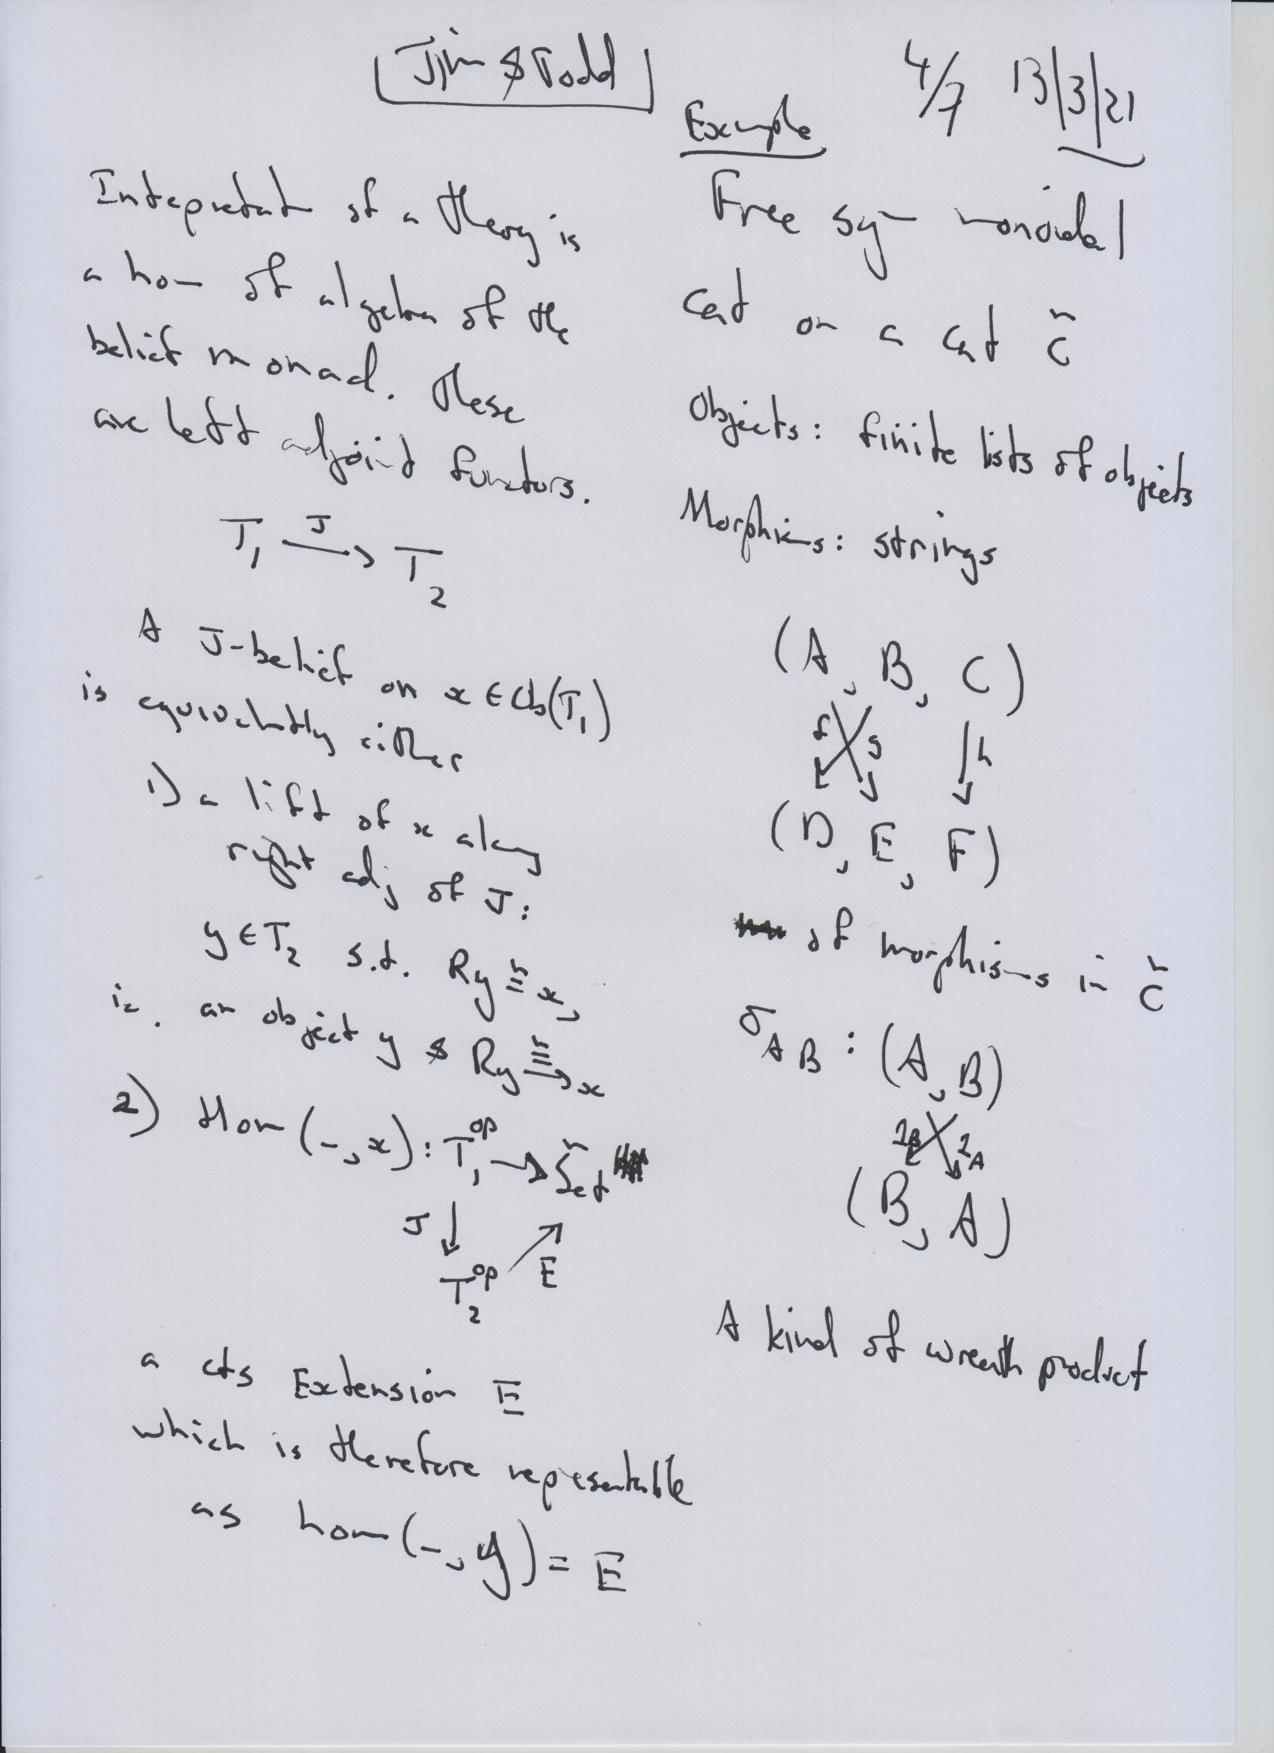 Jim & Todd
4/7 13/3/21
Intepretat of a theory is
a hom of algebra of the
belief monad. These
are left adjoint functors.
T₁ —J→ T₂
A J-belief on x ∈ Ob(T₁)
is equivalently either
1) a lift of x along
right adj of J:
y ∈ T₂ s.t. Ry ≅ x,
ie. an object y & Ry ≅→ x
2) Hom(-, x) : T₁^op → Set
J ↓
T₂^op ↗ E
a cts Extension E
which is therefore representable
as hom(-, y) = E
Example
Free sym monoidal
cat on a cat C
Objects: finite lists of objects
Morphisms: strings
(A, B, C)
f g h
(D, E, F)
of morphisms in C
σ_AB : (A, B)
1_B 1_A
(B, A)
A kind of wreath product